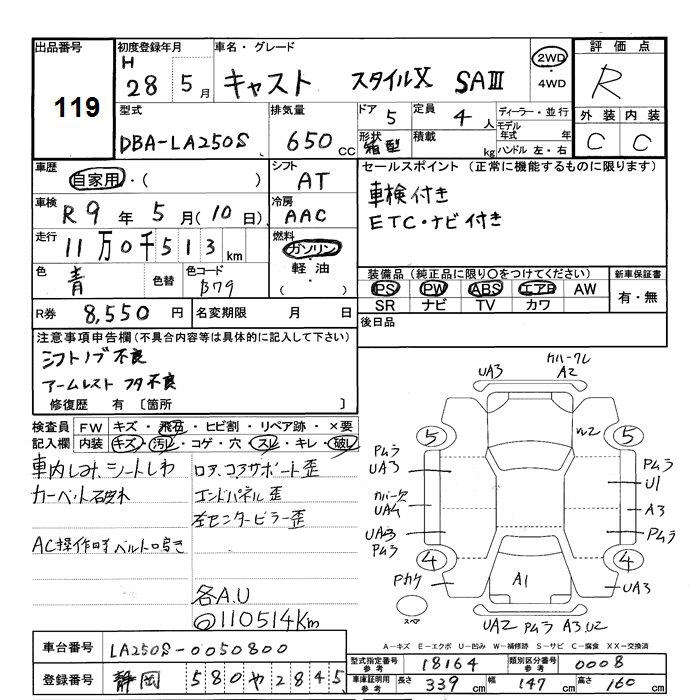 出品番号
119
初度登録年月
H 28 5月
車名・グレード
キャスト スタイルX SAⅢ
2WD
・4WD
評価点
R
外装 内装
C C
型式
DBA-LA250S
排気量
650 cc
ドア 5
形状 箱型
定員 4 人
積載 kg
ディーラー・並行
モデル年式 年
ハンドル 左・右
車歴
自家用・( )
シフト
AT
車検
R 9 年 5 月(10日)
冷房
AAC
走行
11万0千513 km
燃料
ガソリン
・軽油・
( )
色
青
色替
色コード
B79
R券 8,550 円
名変期限 月 日
セールスポイント (正常に機能するものに限ります)
車検付き
ETC・ナビ付き
装備品(純正品に限り○をつけてください)
PS PW ABS エアB AW
SR ナビ TV カワ
新車保証書
有・無
後日品
注意事項申告欄(不具合内容等は具体的に記入して下さい)
シフトノブ不良
アームレスト フタ不良
修復歴 有 〔箇所 〕
検査員記入欄
FW キズ・飛石・ヒビ割・リペア跡・×要
内装 キズ・汚レ・コゲ・穴・スレ・キレ・破レ
車内しみ、シートしわ
カーペット破れ
AC操作時ベルト鳴き
ロア、コアサポート歪
エンドパネル歪
左センターピラー歪
各A.U
◎110514Km
カバークレ
UA3 A2
5
W2
5
Pムラ
UA3
Pムラ
U1
カバー欠
UA4
A3
UA3
Pムラ
Pムラ
4
4
Pカケ
A1
UA3
スペア
UA2 Pムラ A3.U2
A－キズ E－エクボ U－凹み W－補修跡 S－サビ C－腐食 XX－交換済
車台番号 LA250S-0050800
登録番号 静岡 580や2845
型式指定番号 参考 18164
類別区分番号 参考 0008
車庫証明用 参考 長さ 339 cm 幅 147 cm 高さ 160 cm